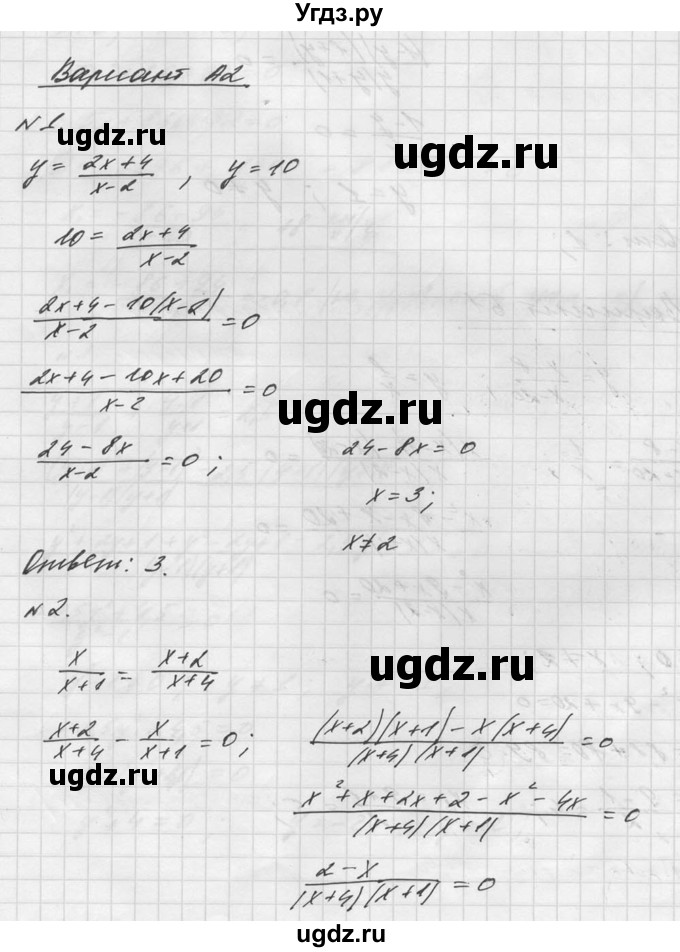 Угдз.ру
Вариант А2
№1
ugdz.ru
ugdz.ru
y = (2x+4)/(x-2) , y = 10
10 = (2x+4)/(x-2)
(2x+4-10(x-2))/(x-2) = 0
(2x+4-10x+20)/(x-2) = 0
ugdz.ru
(24-8x)/(x-2) = 0; 24-8x = 0
x = 3;
x≠2
Ответ: 3.
№2.
x/(x+1) = (x+2)/(x+4)
ugdz.ru
(x+2)/(x+4) - x/(x+1) = 0; ((x+2)(x+1)-x(x+4))/((x+4)(x+1)) = 0
ugdz.ru
(x²+x+2x+2-x²-4x)/((x+4)(x+1)) = 0
(2-x)/((x+4)(x+1)) = 0
ugdz.ru